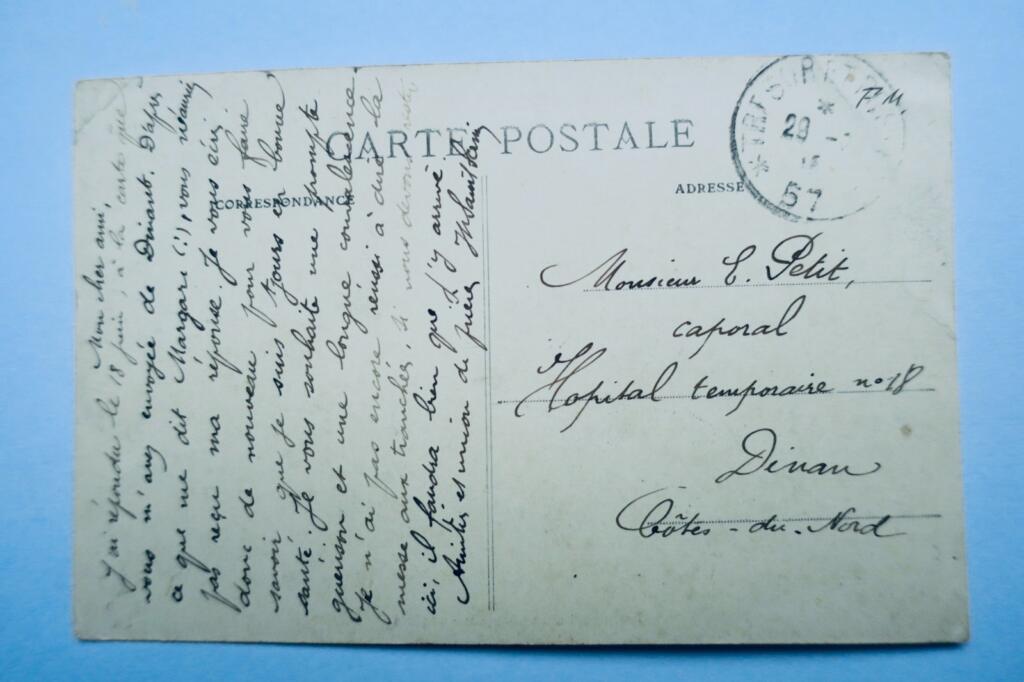 CARTE POSTALE
CORRESPONDANCE
ADRESSE
TRESOR ET
*
29
* 57
F.M.
Monsieur E. Petit,
caporal
Hopital temporaire no 18
Dinan
Côtes-du-Nord
Mon cher ami,
J'ai répondu le 18 juin, à la carte que
vous m'avez envoyée de Dinant. D'après
ce que me dit Margari (?), vous n'auriez
pas reçu ma réponse. Je vous écris
donc de nouveau pour vous faire
savoir que je suis tjours en bonne
santé. Je vous souhaite une prompte
guérison et une longue convalescence.
Je n'ai pas encore réussi à dire la
messe aux tranchées, si nous devons rester
ici, il faudra bien que j'y arrive.
Amitiés et union de prières